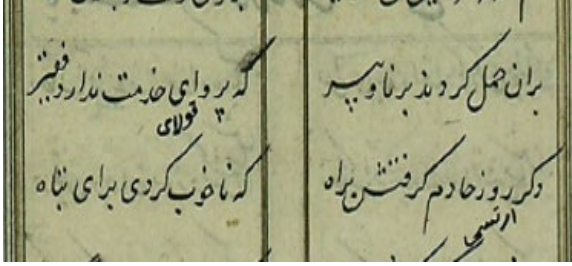 بران حمل کردند برنا و پیر که پروای خدمت ندارد فقیر
قولای
دکر روز خادم گرفتش براه که نا خوب کردی برای تباه
ارتسی